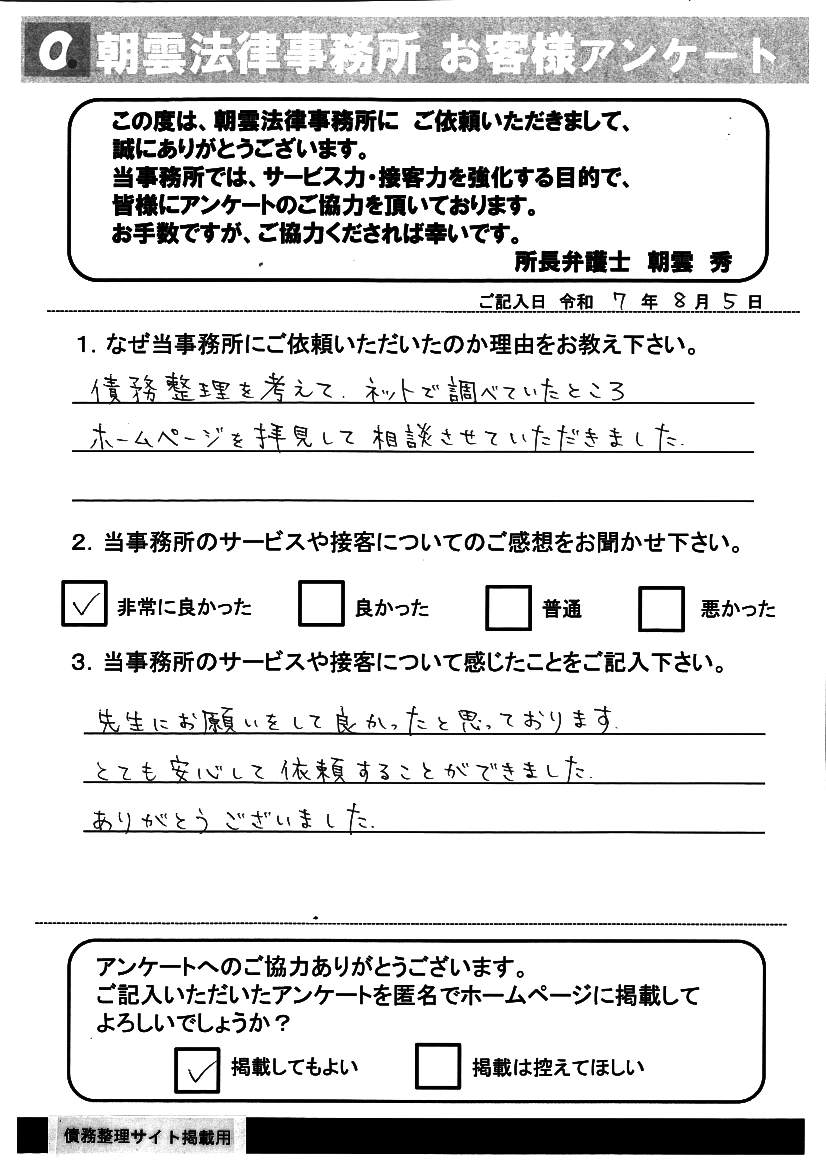 a. 朝雲法律事務所 お客様アンケート
この度は、朝雲法律事務所に ご依頼いただきまして、
誠にありがとうございます。
当事務所では、サービス力・接客力を強化する目的で、
皆様にアンケートのご協力を頂いております。
お手数ですが、ご協力くだされば幸いです。
所長弁護士 朝雲 秀
ご記入日 令和 7 年 8 月 5 日
1. なぜ当事務所にご依頼いただいたのか理由をお教え下さい。
債務整理を考えて、ネットで調べていたところ
ホームページを拝見して相談させていただきました。
2. 当事務所のサービスや接客についてのご感想をお聞かせ下さい。
✓ 非常に良かった 良かった 普通 悪かった
3. 当事務所のサービスや接客について感じたことをご記入下さい。
先生にお願いをして良かったと思っております。
とても安心して依頼することができました。
ありがとうございました。
アンケートへのご協力ありがとうございます。
ご記入いただいたアンケートを匿名でホームページに掲載して
よろしいでしょうか？
✓ 掲載してもよい 掲載は控えてほしい
債務整理サイト掲載用